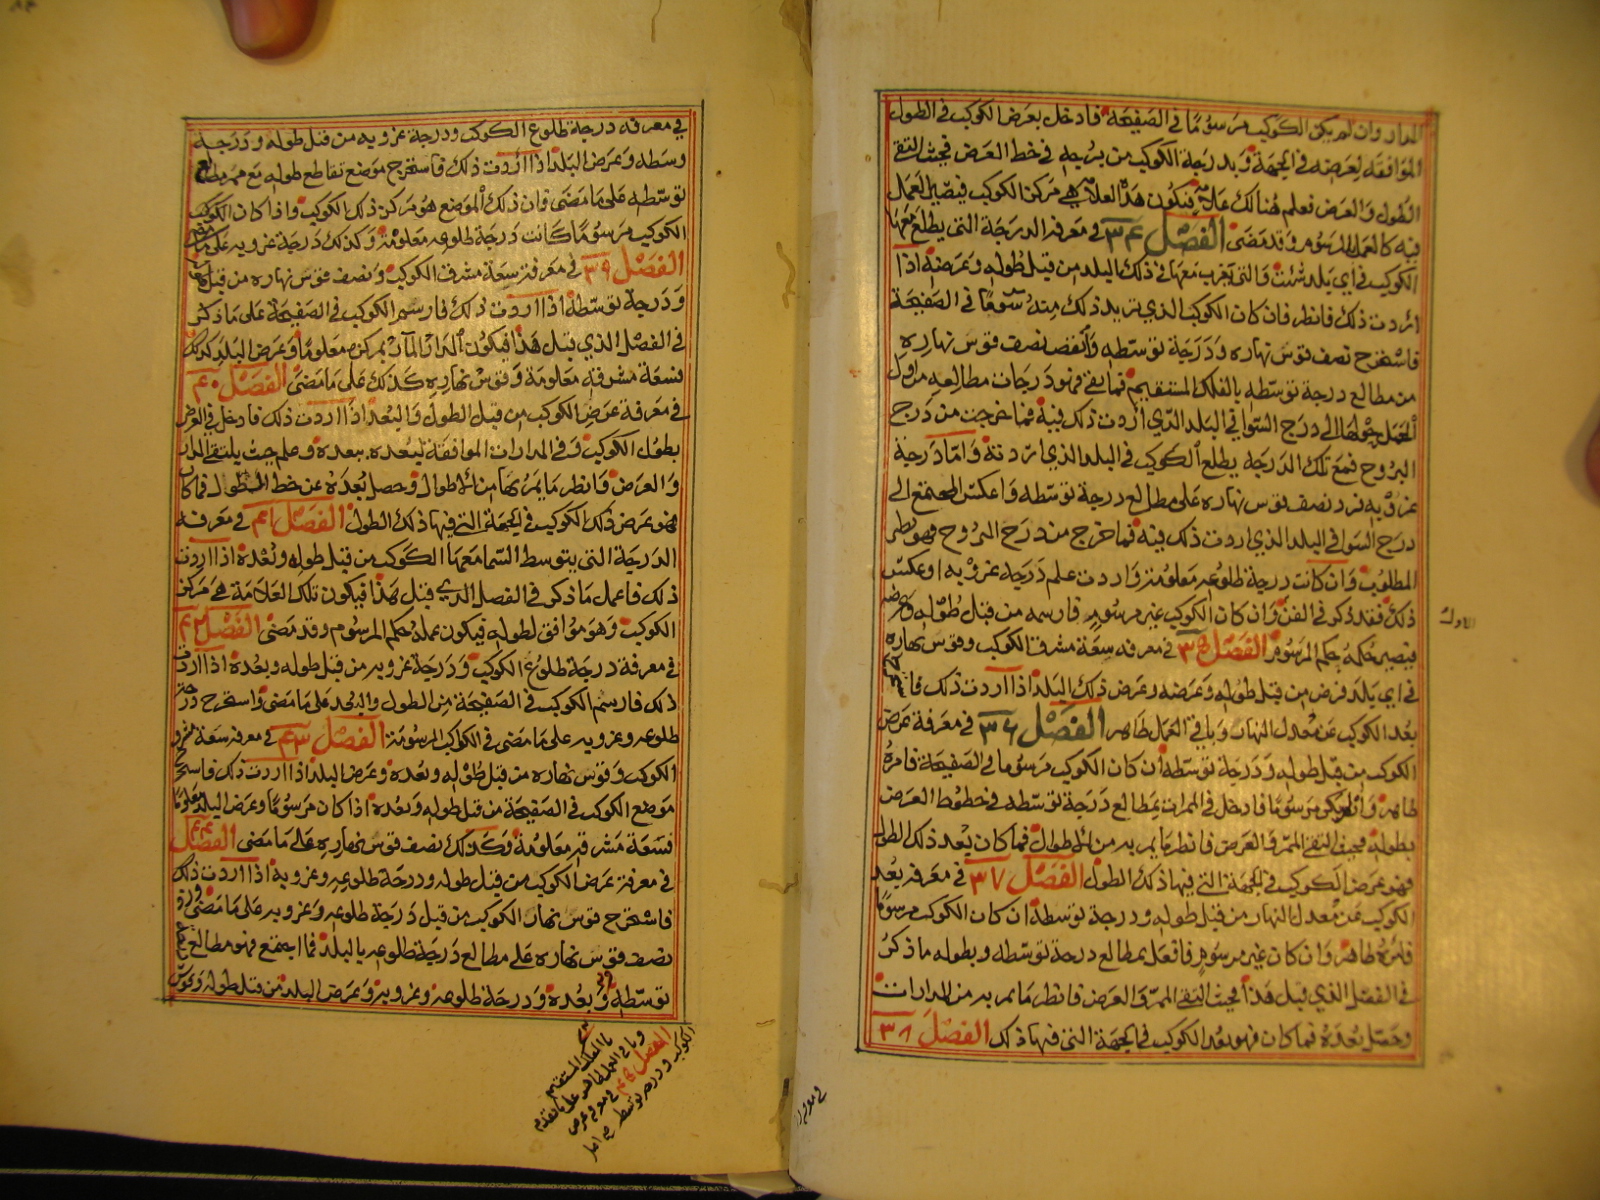 المدار وان لم يكن الكوكب مرسومًا في الصفيحة فادخل بعرض الكوكب في الطول
الموافقه لعرضه في الجهة وبدرجة الكوكب من برجه في خط العرض فحيث التقى
الطول والعرض فعلم هنالك علامة فتكون هذه العلامة هي مركز الكوكب فيصير العمل
فيه كالعمل المرسوم وقد مضى الفصل ٣٤ في معرفه الدرجة التي يطلع معها
الكوكب في اي بلد شئت والتي يغرب معها في ذلك البلد من قبل طوله وعرضه اذا
اردت ذلك فانظر فان كان الكوكب الذي تريد ذلك منه مرسومًا في الصفيحة
فاستخرج نصف قوس نهاره ودرجة توسطه وانقص نصف قوس نهاره
من مطالع درجة توسطه بالفلك المستقيم فما بقي فهو درجات مطالعه من اول
الحمل حولها الى درج السوا في البلد الذي اردت ذلك فيه فما خرجت من درج
البروج فمع تلك الدرجة يطلع الكوكب في البلد الذي اردته واما درجة
غروبه فزد نصف قوس نهاره على مطالع درجة توسطه واعكس المجتمع الى
درج السوا في البلد الذي اردت ذلك فيه فما خرج من درج البروج فهو نظير
المطلوب وان كانت درجة طلوعه معلومة واردت علم درجة غروبه او عكس
ذلك فقد ذكر في الفن وان كان الكوكب غير مرسوم فارسمه من قبل طوله وعرضه
فيصير حكمه حكم المرسوم الفصل ٣٥ في معرفه سعة مشرق الكوكب وقوس نهاره
في اي بلد فرض من قبل طوله وعرضه وعرض ذلك البلد اذا اردت ذلك
بعد الكوكب عن معدل النهار وباقي العمل ظاهر الفصل ٣٦ في معرفة عرض
الكوكب من قبل طوله ودرجة توسطه ان كان الكوكب مرسوما في الصفيحة فامره
ظاهر وان لم يكن مرسومًا فادخل في الممرات بمطالع درجة توسطه في خطوط العرض
بطوله فحيث التقى الممر والعرض فانظر ما يمر به من الاطوال فما كان بعد ذلك الطول
فهو عرض الكوكب في الجهة التي فيها ذلك الطول الفصل ٣٧ في معرفه بعد
الكوكب عن معدل النهار من قبل طوله ودرجة توسطه ان كان الكوكب مرسومًا
فامره ظاهر وان كان غير مرسوم فافعل بمطالع درجة توسطه وبطوله ما ذكر
في الفصل الذي قبل هذا فحيث التقى الممر والعرض فانظر ما يمر به من المدارات
وحصل بعده فما كان فهو بعد الكوكب في الجهة التي فيها ذلك الفصل ٣٨
في معرفه درجة طلوع الكوكب ودرجة غروبه من قبل طوله ودرجة
وسطه وعرض البلد اذا اردت ذلك فاستخرج موضع تقاطع طوله مع ممر مطالع
توسطه على ما مضى فان ذلك الموضع هو مركز ذلك الكوكب واذا كان الكوكب
الكوكب مرسومًا كانت درجة طلوعه معلومة وكذلك درجة غروبه على ما
الفصل ٣٩ في معرفة سعة مشرق الكوكب ونصف قوس نهاره من قبل
ودرجة توسطه اذا اردت ذلك فارسم الكوكب في الصفيحة على ما ذكر
في الفصل الذي قبل هذا فيكون المدار المار بمركزه معلومًا وعرض البلد كذلك
فسعة مشرقه معلومة وقوس نهاره كذلك على ما مضى الفصل ٤٠
في معرفة عرض الكوكب من قبل الطول والبعد اذا اردت ذلك فادخل في العرض
بطول الكوكب وفي المدارات الموافقة لبعده ببعده وعلم حيث يلتقي المدار
والعرض وانظر ما يمر بها من الاطوال وحصل بعده عن خط الطول فما كان
فهو عرض ذلك الكوكب في الجهة التي فيها ذلك الطول الفصل ٤١ في معرفه
الدرجة التي يتوسط السما معها الكوكب من قبل طوله وبعده اذا اردت
ذلك فاعمل ما ذكر في الفصل الذي قبل هذا فيكون تلك العلامة هي مركز
الكوكب وهو موافق لطوله فيكون عمله حكم المرسوم وقد مضى الفصل ٤٢
في معرفة درجة طلوع الكوكب ودرجة غروبه من قبل طوله وبعده اذا اردت
ذلك فارسم الكوكب في الصفيحة من الطول والبعد على ما مضى واستخرج درجة
طلوعه وغروبه على ما مضى في الكواكب المرسومة الفصل ٤٣ في معرفه سعة مشرق
الكوكب وقوس نهاره من قبل طوله وبعده وعرض البلد اذا اردت ذلك فاستخرج
موضع الكوكب في الصفيحة من قبل طوله وبعده اذا كان مرسومًا وعرض البلد معلومًا
فسعة مشرقه معلومة وكذلك نصف قوس نهاره على ما مضى الفصل ٤٤
في معرفة عرض الكوكب من قبل طوله ودرجة طلوعه وغروبه اذا اردت ذلك
فاستخرج قوس نهار الكوكب من قبل درجة طلوعه وغروبه على ما مضى وزد
نصف قوس نهاره على مطالع درجة طلوعه بالبلد فما اجتمع فهو مطالع
توسطه وبعده ودرجة طلوعه وغروبه وعرض البلد من قبل طوله وقوس
بالفلك المستقيم
وباقي العمل ظاهر على ما تقدم
الفصل ٤٥ في معرفه عرض
الكوكب ودرجة توسطه